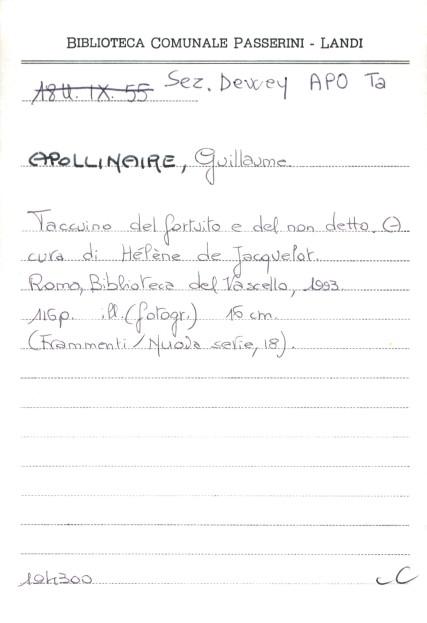 BIBLIOTECA COMUNALE PASSERINI - LANDI
18U. IX. 55 Sez. Dewey APO Ta
APOLLINAIRE, Guillaume
Taccuino del fortuito e del non detto. A
cura di Hélène de Jacquelot.
Roma, Biblioteca del Vascello, 1993.
116p. ill. (fotogr.) 16 cm.
(Frammenti / Nuova serie, 18).
194300